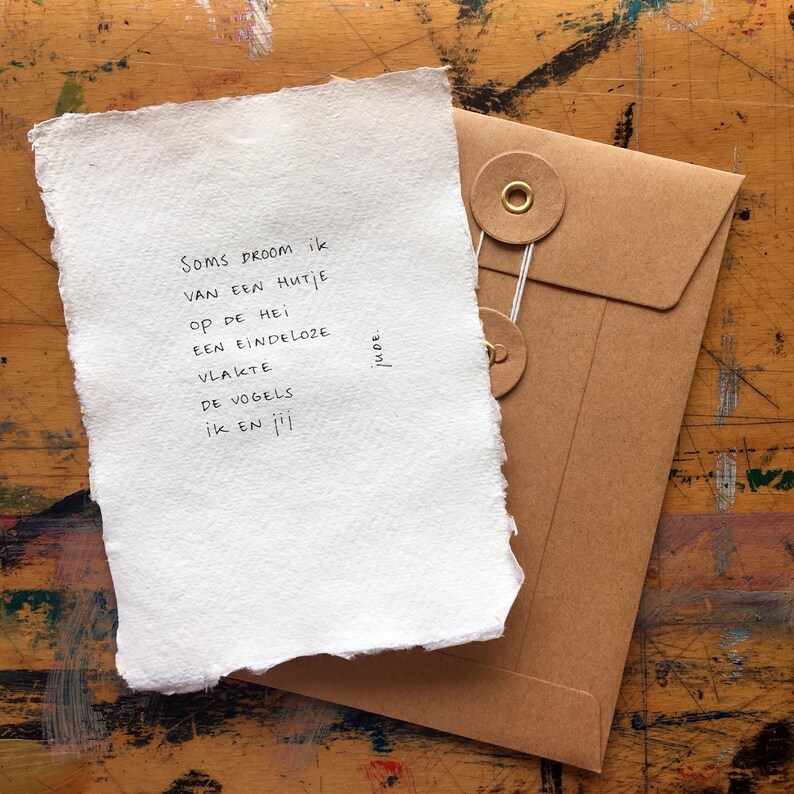 Soms DROOM ik
VAN EEN HUTjE
OP DE HEi
EEN EiNDELOZE
VLAKTE
DE VOGELS
iK EN jij
juDE.